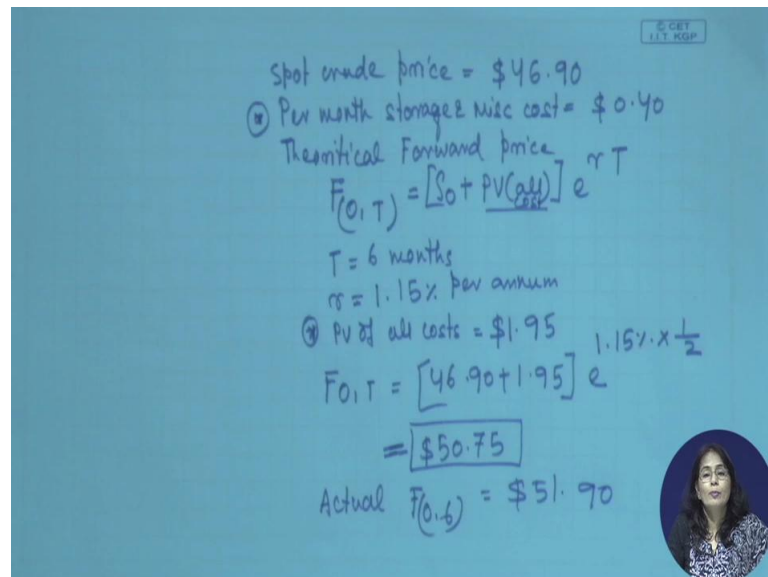 © CET
I.I.T. KGP
Spot crude price = $46.90
* Per month storage & Misc cost = $0.40
Theoritical Forward price
F(0,T) = [S0 + PV(all cost)] e^rT
T = 6 months
r = 1.15% per annum
* PV of all costs = $1.95
F0,T = [46.90+1.95] e^1.15% × 1/2
= $50.75
Actual F(0,6) = $51.90